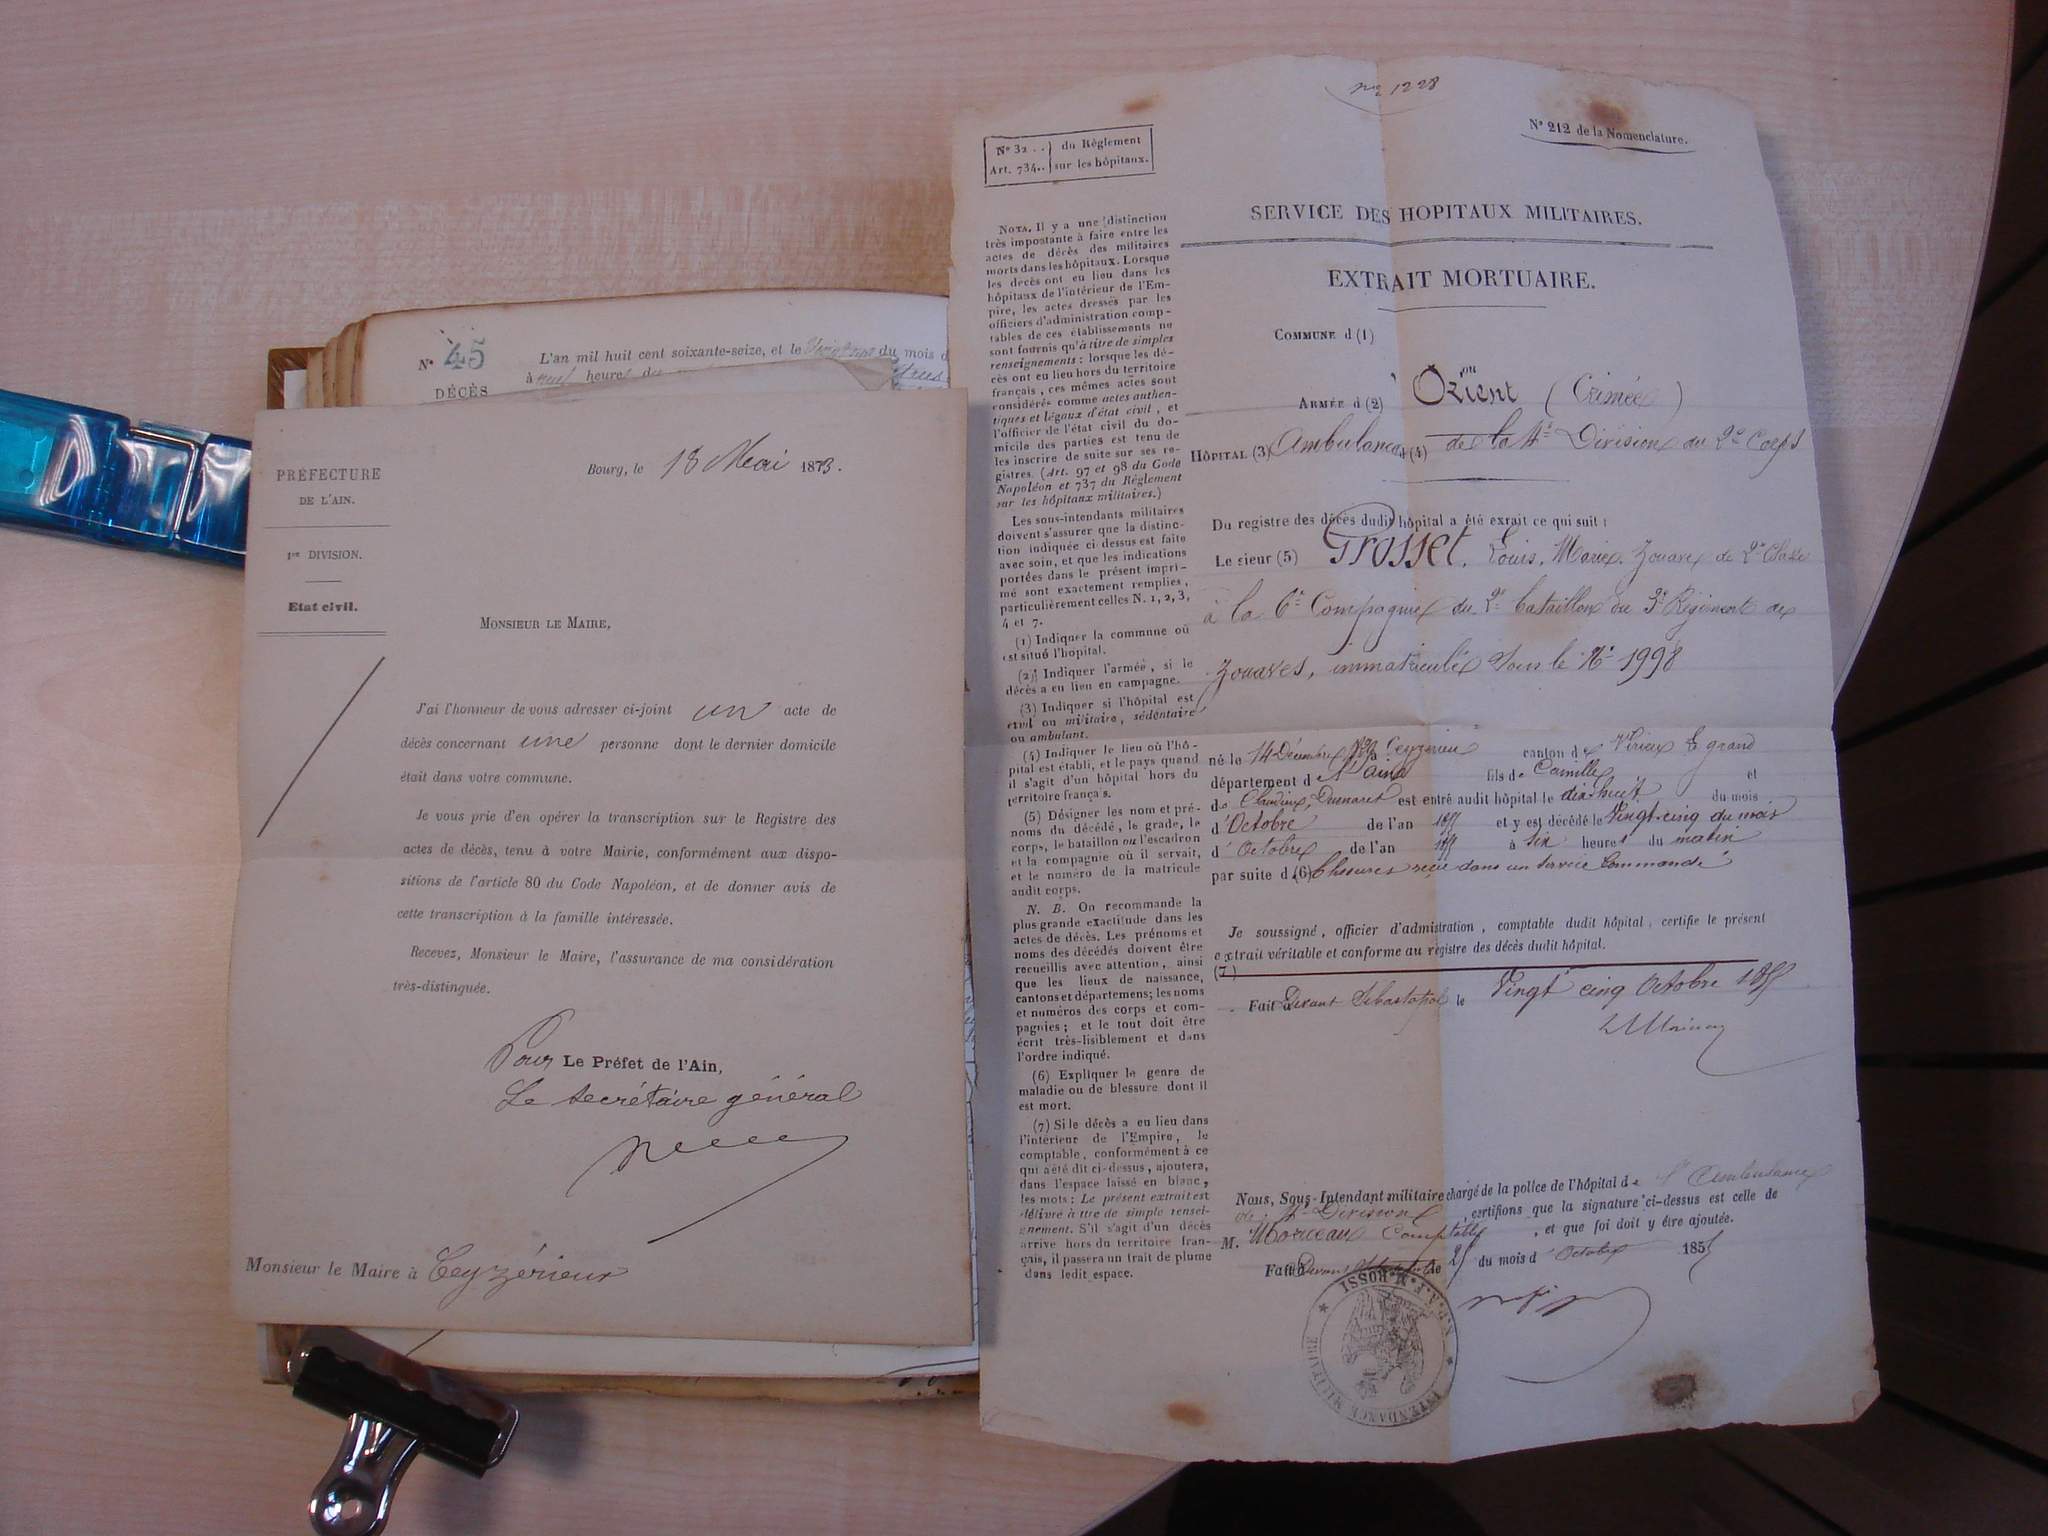 N° 45
DÉCÈS
L'an mil huit cent soixante-seize, et le du mois d
à heures du
PRÉFECTURE
DE L'AIN.
1re DIVISION.
Etat civil.
Bourg, le 18 Mai 1873.
MONSIEUR LE MAIRE,
J'ai l'honneur de vous adresser ci-joint un acte de
décès concernant une personne dont le dernier domicile
était dans votre commune.
Je vous prie d'en opérer la transcription sur le Registre des
actes de décès, tenu à votre Mairie, conformément aux dispo-
sitions de l'article 80 du Code Napoléon, et de donner avis de
cette transcription à la famille intéressée.
Recevez, Monsieur le Maire, l'assurance de ma considération
très-distinguée.
Pour Le Préfet de l'Ain,
Le secrétaire général
Monsieur le Maire à Ceyzérieux
1228
N° 32 .. } du Règlement
Art. 734.. } sur les hôpitaux.
N° 212 de la Nomenclature.
NOTA. Il y a une distinction
très importante à faire entre les
actes de décès des militaires
morts dans les hôpitaux. Lorsque
les décès ont eu lieu dans les
hôpitaux de l'intérieur de l'Em-
pire, les actes dressés par les
officiers d'administration comp-
tables de ces établissements ne
sont fournis qu'à titre de simples
renseignements : lorsque les dé-
cès ont eu lieu hors du territoire
français, ces mêmes actes sont
considérés comme actes authen-
tiques et légaux d'état civil, et
l'officier de l'état civil du do-
micile des parties est tenu de
les inscrire de suite sur ses re-
gistres. (Art. 97 et 98 du Code
Napoléon et 737 du Règlement
sur les hôpitaux militaires.)
Les sous-intendants militaires
doivent s'assurer que la distinc-
tion indiquée ci-dessus est faite
avec soin, et que les indications
portées dans le présent impri-
mé sont exactement remplies,
particulièrement celles N. 1, 2, 3,
4 et 7.
(1) Indiquer la commune où
est situé l'hopital.
(2) Indiquer l'armée, si le
décès a eu lieu en campagne.
(3) Indiquer si l'hôpital est
civil ou militaire, sédentaire
ou ambulant.
(4) Indiquer le lieu où l'hô-
pital est établi, et le pays quand
il s'agit d'un hôpital hors du
territoire français.
(5) Désigner les nom et pré-
noms du décédé, le grade, le
corps, le bataillon ou l'escadron
et la compagnie où il servait,
et le numéro de la matricule
audit corps.
N. B. On recommande la
plus grande exactitude dans les
actes de décès. Les prénoms et
noms des décédés doivent être
recueillis avec attention, ainsi
que les lieux de naissance,
cantons et départemens; les noms
et numéros des corps et com-
pagnies; et le tout doit être
écrit très-lisiblement et dans
l'ordre indiqué.
(6) Expliquer le genre de
maladie ou de blessure dont il
est mort.
(7) Si le décès a eu lieu dans
l'intérieur de l'Empire, le
comptable, conformément à ce
qui a été dit ci-dessus, ajoutera,
dans l'espace laissé en blanc,
les mots : Le présent extrait est
délivré à titre de simple rensei-
gnement. S'il s'agit d'un décès
arrivé hors du territoire fran-
çais, il passera un trait de plume
dans ledit espace.
SERVICE DES HOPITAUX MILITAIRES.
EXTRAIT MORTUAIRE.
COMMUNE d (1)
ou
ARMÉE d (2) Orient (Crimée)
HÔPITAL (3) Ambulance d (4) de la 4e Division du 2e Corps
Du registre des décès dudit hôpital a été exrait ce qui suit :
Le sieur (5) Grosset, Louis, Marie, Zouave de 2e Classe
à la 6e Compagnie du 2e bataillon du 3e Régiment de
Zouaves, immatriculé sous le No 1998
né le 14 Décembre à Ceyzerieu canton de Virieux Le grand
département d l'ain fils de Camille et
de Claudine, Dumaret est entré audit hôpital le dix-huit du mois
d'Octobre de l'an 1855 et y est décédé le Vingt-cinq du mois
d'Octobre de l'an 1855 à six heures du matin
par suite d (6) blessures reçue dans un service Commandé
Je soussigné, officier d'admistration, comptable dudit hôpital, certifie le présent
extrait véritable et conforme au registre des décès dudit hôpital.
(7)
Fait à Devant Sébastopol le Vingt cinq Octobre 1855
Nous, Sous-Intendant militaire chargé de la police de l'hôpital de l'Ambulance
de 4e Division, certifions que la signature ci-dessus est celle de
M. Comptable, et que foi doit y être ajoutée.
Fait à Devant le 25 du mois d'Octobre 1855
INTENDANCE MILITAIRE * N.P.A.F.M. ROSSI *